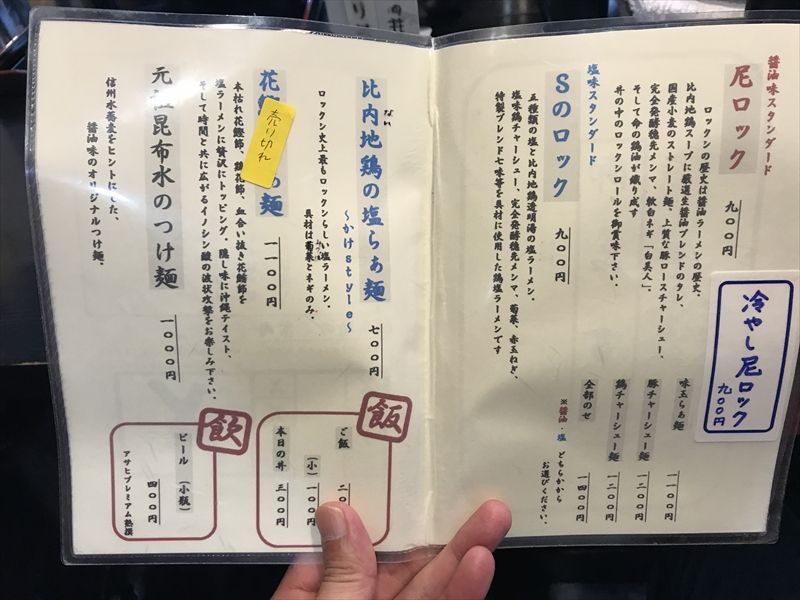 醤油味スタンダード
尼ロック
九〇〇円
ロックンの歴史は醤油ラーメンの歴史。
比内地鶏スープに厳選生醤油ブレンドのタレ、
国産小麦のストレート麺、上質な豚ロースチャーシュー、
完全発酵穂先メンマ、軟白ネギ「白美人」、
そして命の鶏油が織り成す
丼の中のロックンロールを御賞味下さい。
塩味スタンダード
Sのロック
九〇〇円
五種類の塩と比内地鶏透明湯の塩ラーメン。
塩味鶏チャーシュー、完全発酵穂先メンマ、菊菜、赤玉ねぎ、
特製ブレンド七味等を具材に使用した鶏塩ラーメンです
冷やし尼ロック
九〇〇円
味玉らぁ麺
一一〇〇円
豚チャーシュー麺
一二〇〇円
鶏チャーシュー麺
一二〇〇円
全部のせ
一四〇〇円
※醤油・塩 どちらかから
お選びください。
比内地鶏の塩らぁ麺
〜かけstyle〜
七〇〇円
ロックン史上最もロックンらしい塩ラーメン。
具材は菊菜とネギのみ。
ない
花
ぁ麺
売り切れ
一一〇〇円
本枯れ花鰹節、鶏花節、血合い抜き花鮪節を
塩ラーメンに贅沢にトッピング。隠し味に沖縄テイスト、
そして時間と共に広がるイノシン酸の波状攻撃をお楽しみ下さい。
元祖昆布水のつけ麺
一〇〇〇円
信州水蕎麦をヒントにした、
醤油味のオリジナルつけ麺。
飯
ご飯
二〇
(小)
一〇〇円
本日の丼
三〇〇円
飲
ビール (小瓶)
四〇〇円
アサヒプレミアム熟撰